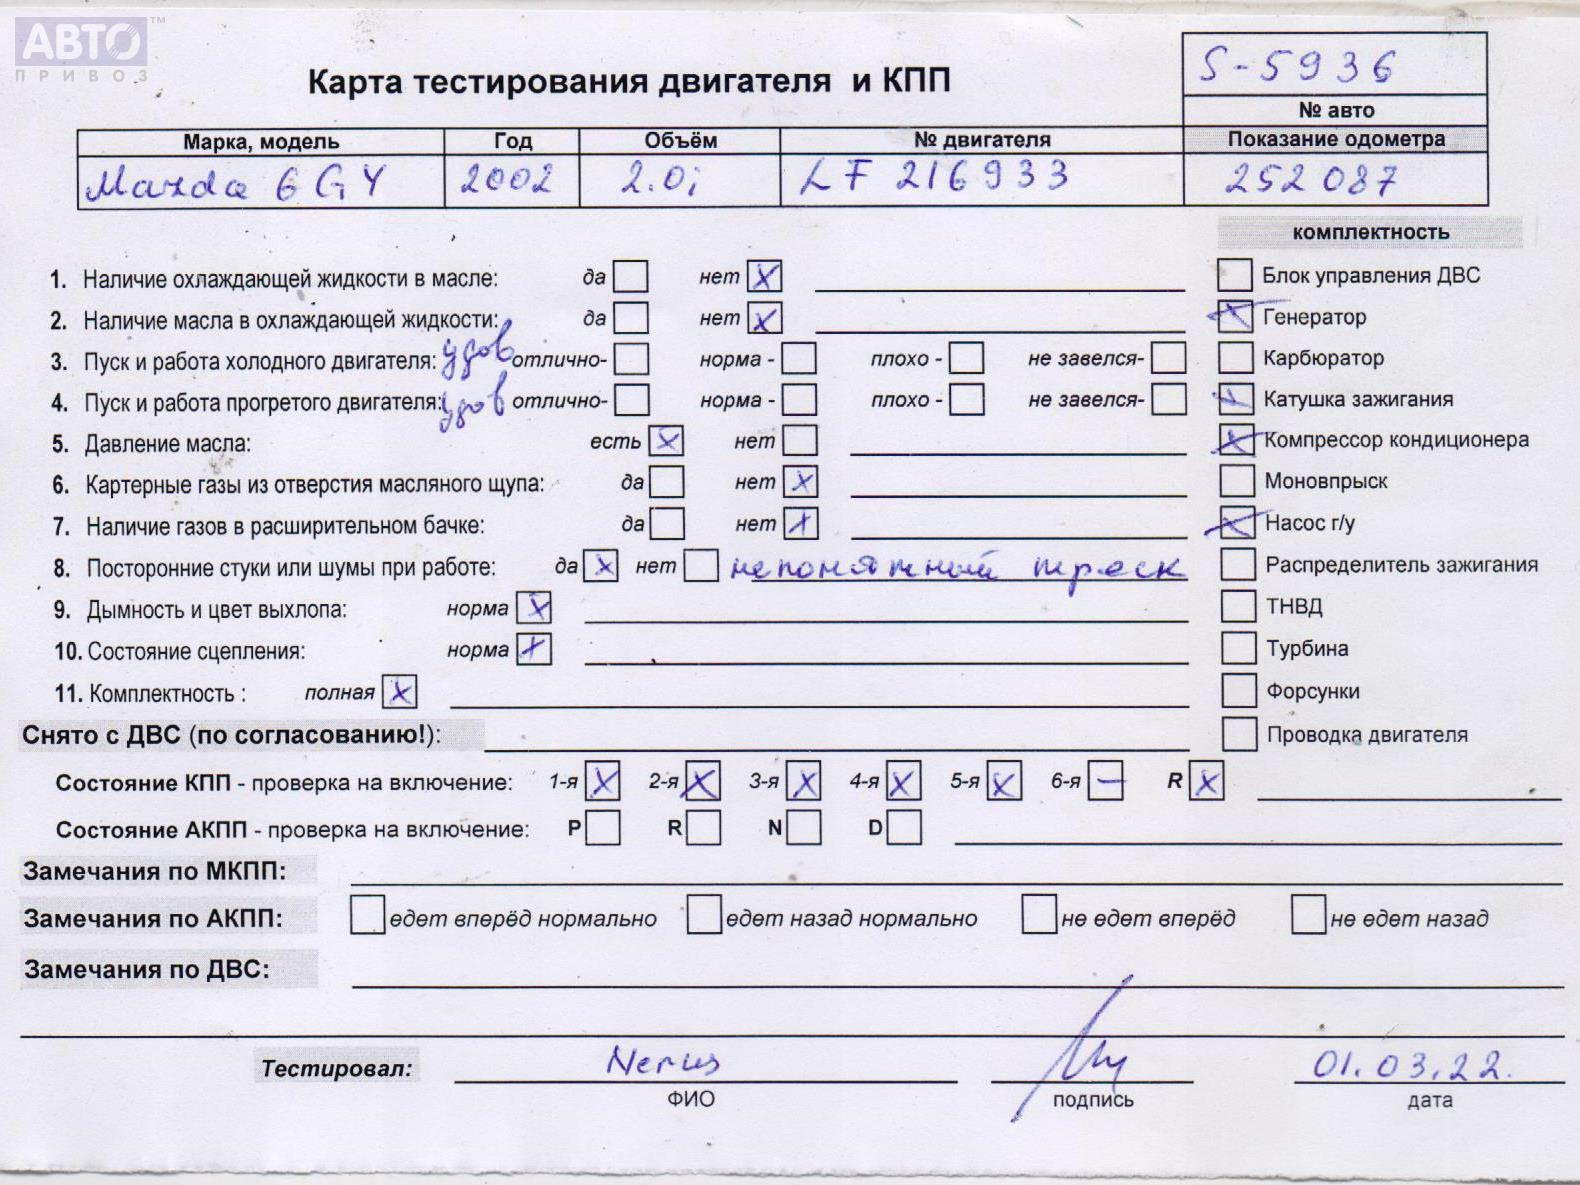 АВТО™
ПРИВОЗ
Карта тестирования двигателя и КПП
S-5936
№ авто
Марка, модель Год Объём № двигателя Показание одометра
Mazda 6 GY 2002 2.0i LF 216933 252087
комплектность
1. Наличие охлаждающей жидкости в масле: да нет X Блок управления ДВС
2. Наличие масла в охлаждающей жидкости: да нет X X Генератор
3. Пуск и работа холодного двигателя: удов отлично- норма - плохо - не завелся- Карбюратор
4. Пуск и работа прогретого двигателя: удов отлично- норма - плохо - не завелся- X Катушка зажигания
5. Давление масла: есть X нет X Компрессор кондиционера
6. Картерные газы из отверстия масляного щупа: да нет X Моновпрыск
7. Наличие газов в расширительном бачке: да нет X X Насос г/у
8. Посторонние стуки или шумы при работе: да X нет непонятный треск Распределитель зажигания
9. Дымность и цвет выхлопа: норма X ТНВД
10. Состояние сцепления: норма X Турбина
11. Комплектность : полная X Форсунки
Снято с ДВС (по согласованию!): Проводка двигателя
Состояние КПП - проверка на включение: 1-я X 2-я X 3-я X 4-я X 5-я X 6-я — R X
Состояние АКПП - проверка на включение: P R N D
Замечания по МКПП:
Замечания по АКПП: едет вперёд нормально едет назад нормально не едет вперёд не едет назад
Замечания по ДВС:
Тестировал: 01.03.22.
ФИО подпись дата